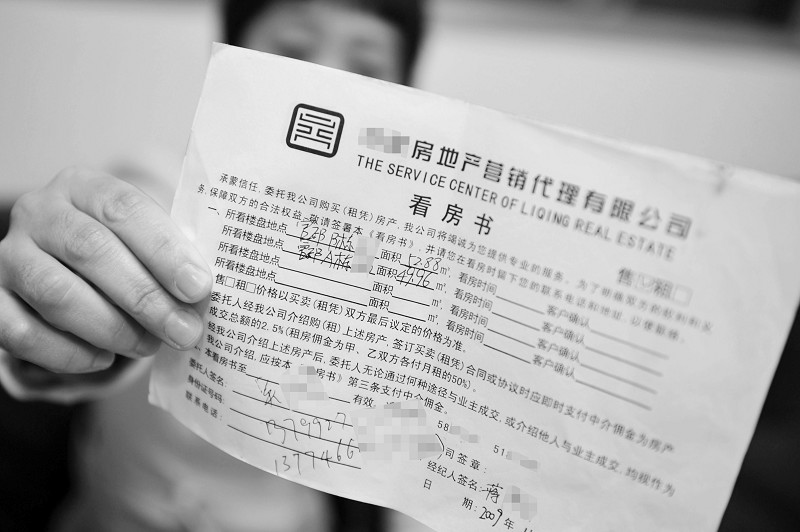 房地产营销代理有限公司
THE SERVICE CENTER OF LIQING REAL ESTATE
看房书
售□租□
承蒙信任，委托我公司购买(租赁)房产，我公司将竭诚为您提供专业的服务，为了明确双方的权利和义
务，保障双方的合法权益，敬请签署本《看房书》，并请您在看房时留下您的联系电话和地址，以便联络。
一、所看楼盘地点 面积 ㎡，看房时间 客户确认
所看楼盘地点 面积 4996 ㎡，看房时间 客户确认
所看楼盘地点 面积 ㎡，看房时间 客户确认
所看楼盘地点 面积 ㎡，看房时间 客户确认
售□租□价格以买卖(租赁)双方最后议定的价格为准。
委托人经我公司介绍购(租)上述房产，签订买卖(租赁)合同或协议时应即时支付中介佣金为房产
成交总额的2.5%(租房佣金为甲、乙双方各付月租的50%)。
经我公司介绍上述房产后，委托人无论通过何种途径与业主成交，或介绍他人与业主成交，均视作为
我公司介绍，应按本 书》第三条支付中介佣金。
本看房书至 有效，
委托人签名： 58 51
身份证号码： 1379927 司签章：
联系电话： 1377466 经纪人签名：蒋
日 期：2009年